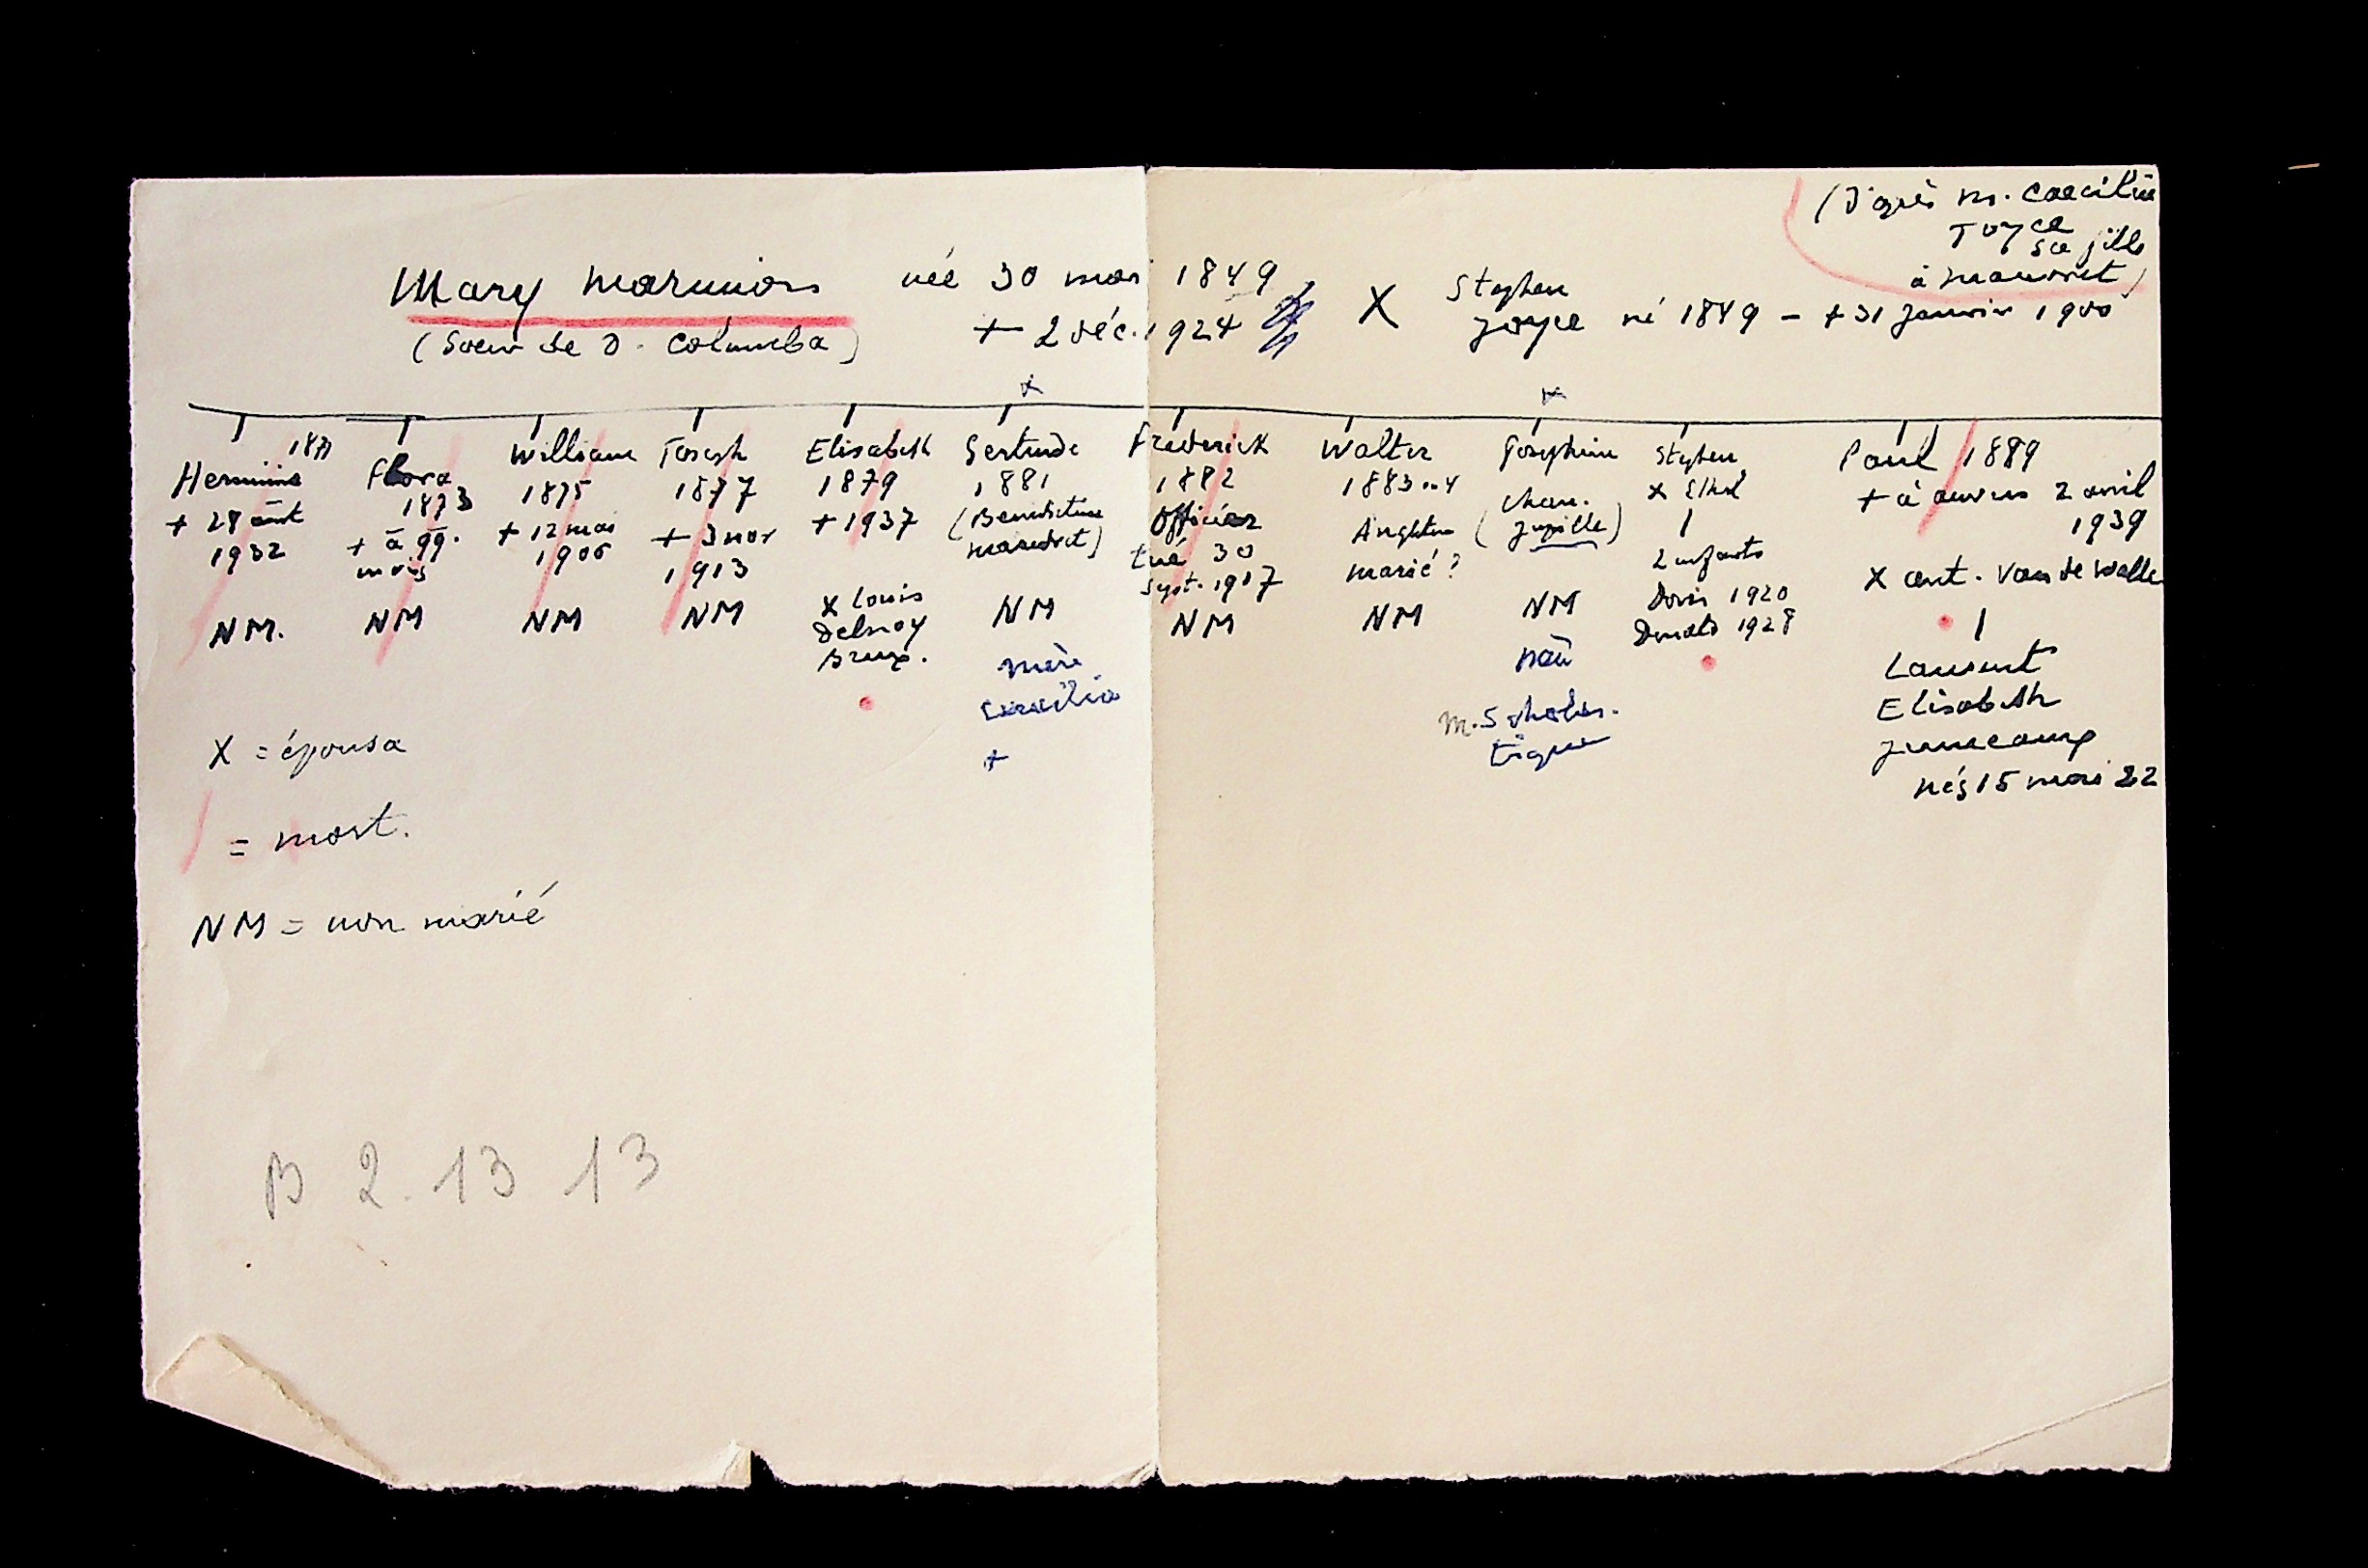 (D'après M. Caecilia
Joyce
sa fille
à Maredret)
Mary Marmion née 30 mai 1849 X Stephen
Joyce né 1849 - + 31 janvier 1900
(Soeur de D. Columba) + 2 déc. 1924
x x
1871
Herminie
+ 28 août
1932
NM.
Flora
1873
+ à 99.
mois
NM
William
1875
+ 12 mai
1906
NM
Joseph
1877
+ 3 nov
1913
NM
Elisabeth
1879
+ 1937
x Louis
Delnoy
Brux.
Gertrude
1881
(Bénédictine
Maredret)
NM
mère
Caecilia
+
Frederick
1882
Officier
tué 30
sept. 1917
NM
Walter
1883 ou 4
Angleterre
marié ?
NM
Josephine
chan.
(Jupille)
NM
M. Scholas-
tique
Stephen
x Ethel
2 enfants
Doris 1920
Donald 1928
Paul 1889
+ à Anvers 2 avril
1939
X ant. Van de Walle
Laurent
Elisabeth
jumeaux
nés 15 mai 22
X = épousa
/ = mort.
NM = non marié
B 2. 13 13